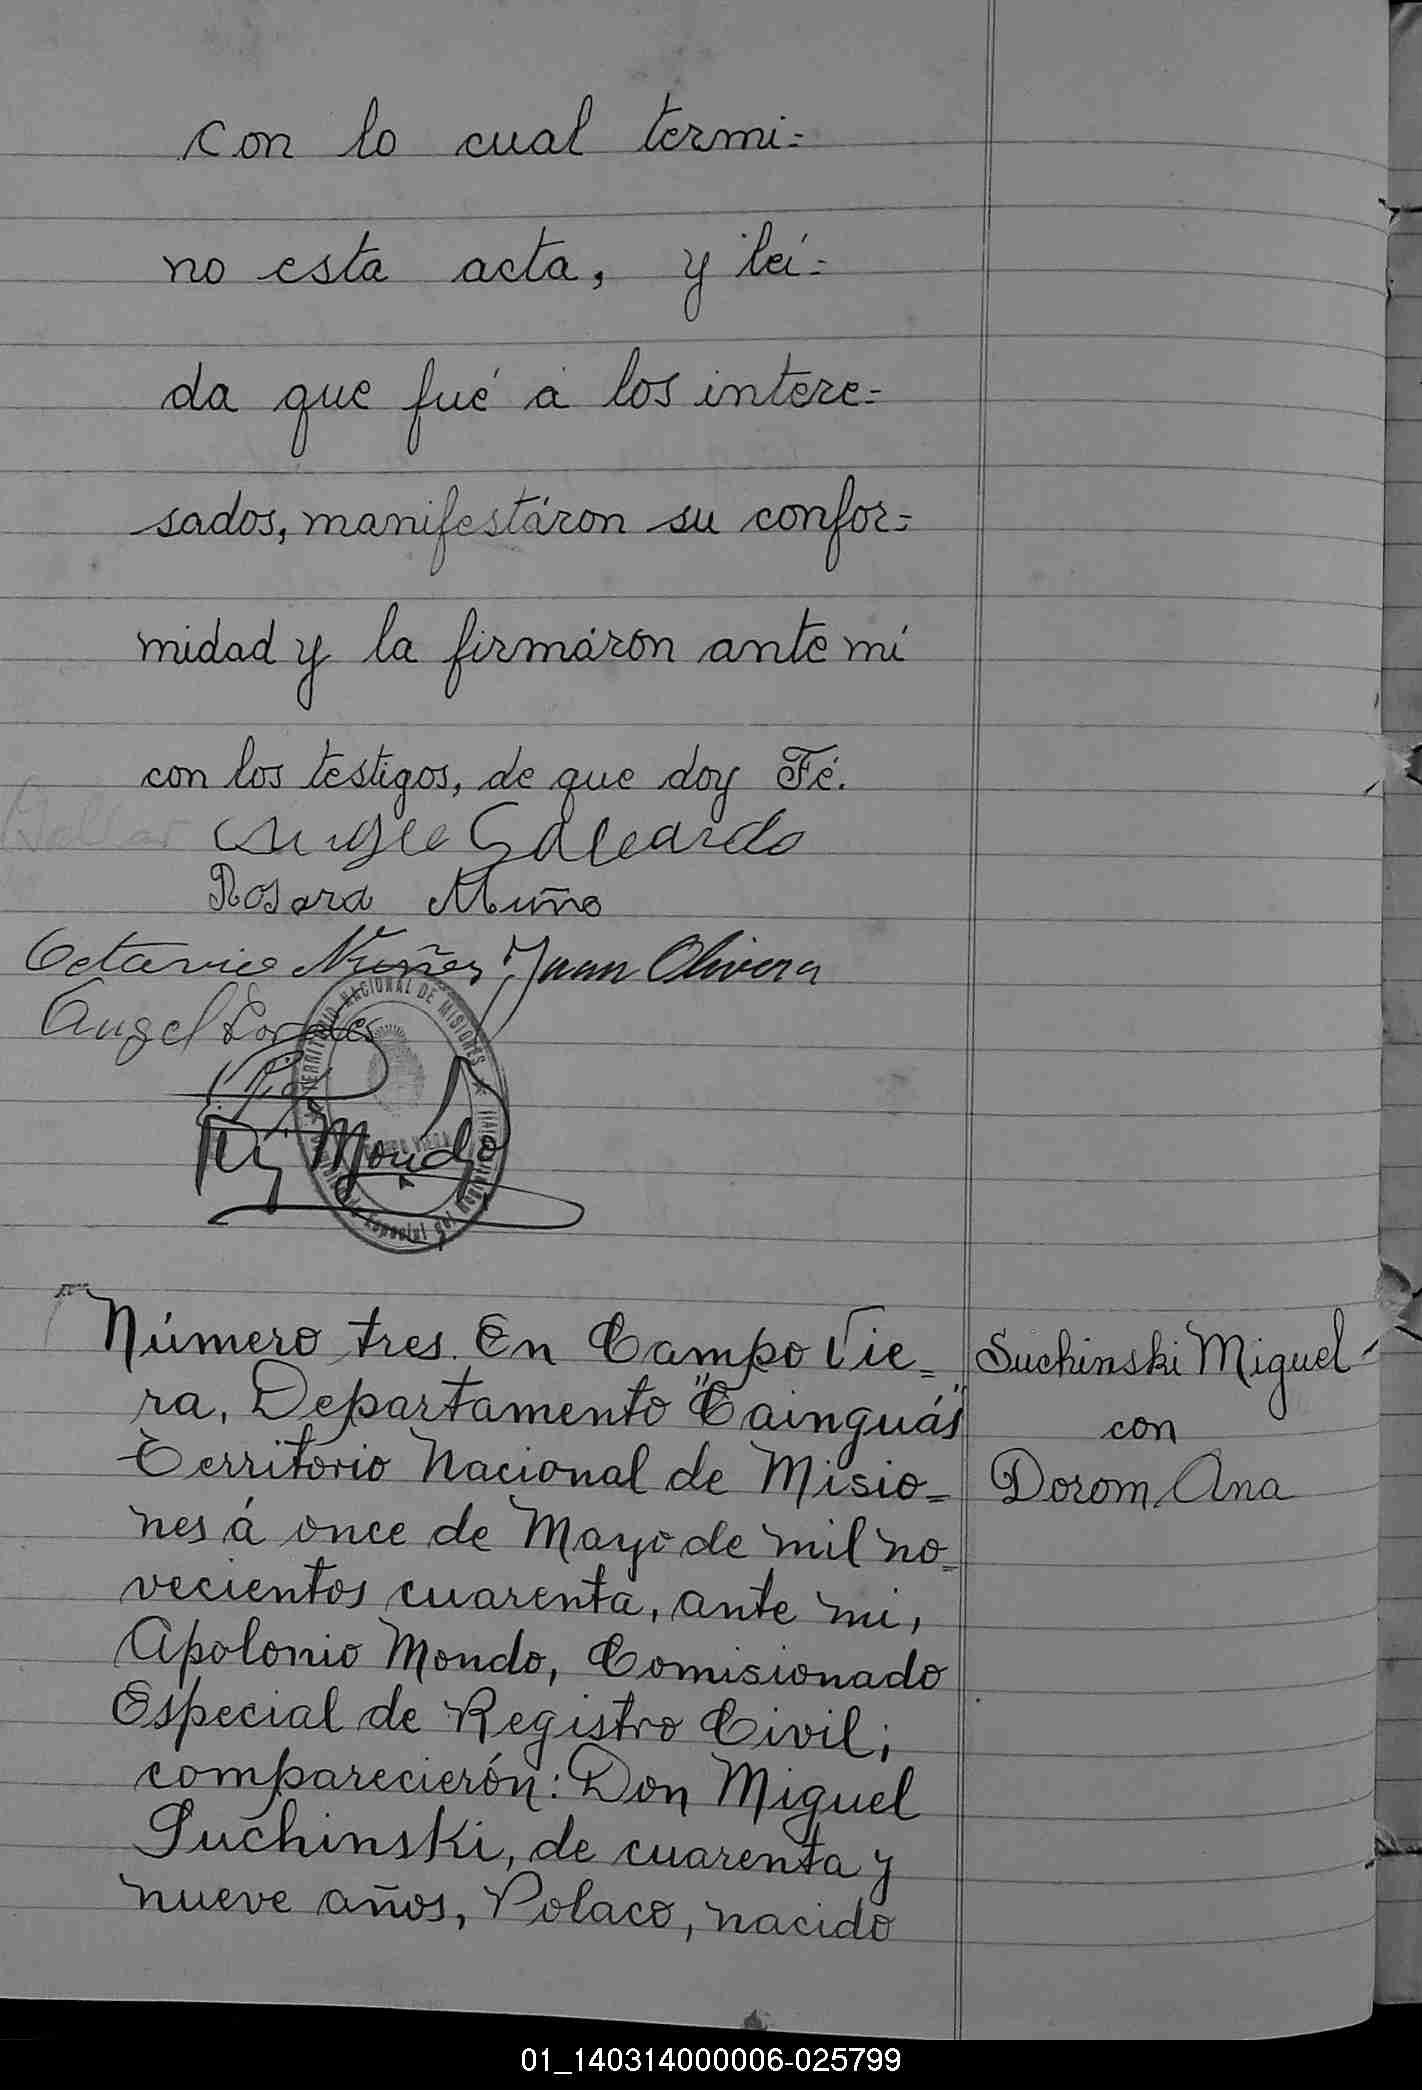 con lo cual termi=
no esta acta, y leí=
da que fué á los intere=
sados, manifestáron su confor=
midad y la firmáron ante mí
con los testigos, de que doy Fé.
Rosara Muño
Octavio Nuñez Juan Olivera
Angel
TERRITORIO NACIONAL DE MISIONES
Mondo
Número tres. En Campo Vie=
ra, Departamento "Cainguás"
Territorio Nacional de Misio=
nes á once de Mayo de mil no=
vecientos cuarenta, ante mi,
Apolonio Mondo, Comisionado
Especial de Registro Civil;
comparecierón: Don Miguel
Suchinski, de cuarenta y
nueve años, Polaco, nacido
Suchinski Miguel
con
Dorom Ana
01_140314000006-025799